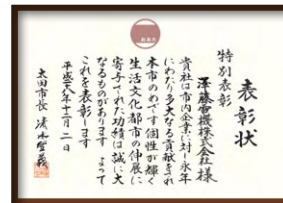 表彰状
特別表彰
澤藤電機株式会社様
貴社は市内企業に対し永年
にわたり多大なる貢献をされ
本市のめざす個性が輝く
生活文化都市の伸展に
寄与された功績は誠に大
なるものがあります よって
これを表彰します
平成二八年十一月二日
太田市長 清水聖義